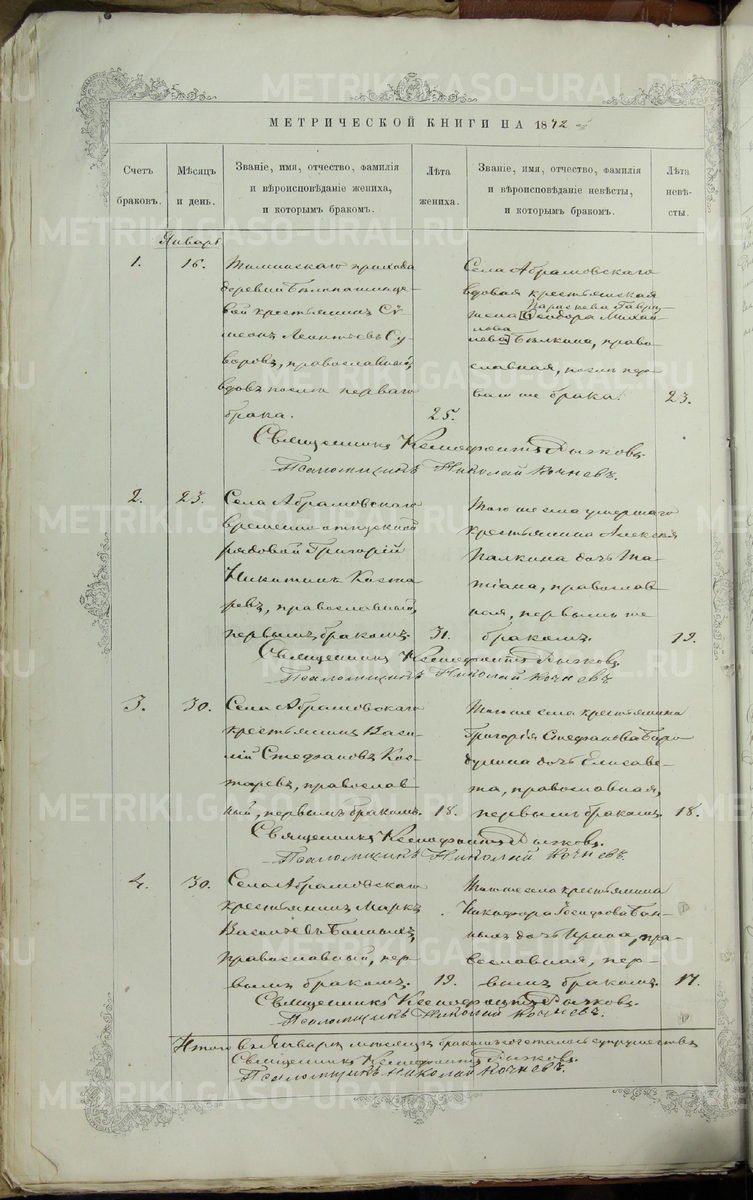 МЕТРИЧЕСКОЙ КНИГИ НА 1872
Счетъ браковъ.
Мѣсяцъ и день.
Званіе, имя, отчество, фамилія
и вѣроисповѣданіе жениха,
и которымъ бракомъ.
Лѣта жениха.
Званіе, имя, отчество, фамилія
и вѣроисповѣданіе невѣсты,
и которымъ бракомъ.
Лѣта невѣсты.
Январь
1.
16.
прихода
деревни
вой крестьянинъ Сѵ
меонъ Леонтьевъ Су
воровъ, православный,
вдовъ послѣ перваго
брака.
25.
Села Абрамовскаго
вдовая крестьянская
Параскева Гаври
жена Ѳеодора Михай
лова
лова Бѣлкина, право
славная, послѣ пер
ваго же брака.
23.
Священникъ Ксенофонтъ Рыжковъ.
Псаломщикъ Николай Кочневъ.
2.
23.
Села Абрамовскаго
временно отпускной
рядовой Григорій
Никитинъ Коста
ревъ, православный,
первымъ бракомъ.
31.
Того же села умершаго
крестьянина Алексѣя
Палкина дочь Та
тіана, православ
ная, первымъ же
бракомъ.
19.
Священникъ Ксенофонтъ Рыжковъ.
Псаломщикъ Николай Кочневъ
3.
30.
Села Абрамовскаго
крестьянинъ Васи
лій Стефановъ Кос
таревъ, православ
ный, первымъ бракомъ.
18.
Того же села крестьянина
Григорія Стефанова
дочь Елисаве
та, православная,
первымъ бракомъ.
18.
Священникъ Ксенофонтъ Рыжковъ.
Псаломщикъ Николай Кочневъ.
4.
30.
Села Абрамовскаго
крестьянинъ Маркъ
Васильевъ Банныхъ,
православный, пер
вымъ бракомъ.
19.
Того же села крестьянина
Никифора Іосифова Бан
ныхъ дочь Ирина, пра
вославная, пер
вымъ бракомъ.
17.
Священникъ Ксенофонтъ Рыжковъ.
Псаломщикъ Николай Кочневъ.
Итого въ Январѣ мѣсяцѣ бракомъ сочеталось супружествъ
Священникъ Ксенофонтъ Рыжковъ.
Псаломщикъ Николай Кочневъ.
METRIKI.GASO-URAL.RU